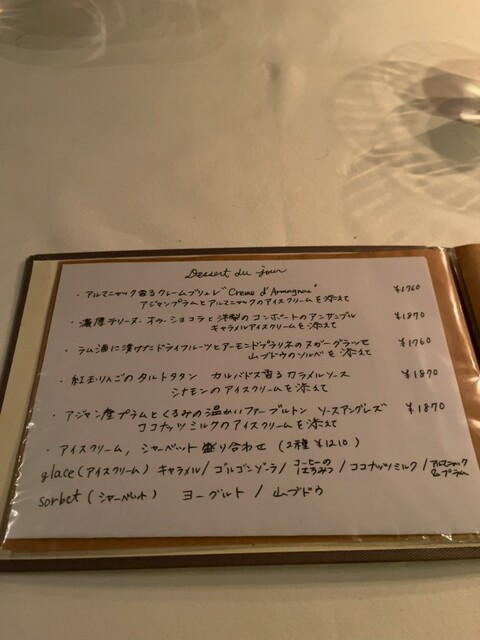 Dessert du jour
・アルマニャック香るクレームブリュレ "Creme d'Armagnac" ¥1760
アジャンプラムとアルマニャックのアイスクリームを添えて
・濃厚テリーヌ・オ・ショコラと洋梨のコンポートのアンサンブル ¥1870
キャラメルアイスクリームを添えて
・ラム酒に漬けたドライフルーツとアーモンドプラリネのヌガーグラッセ ¥1760
山ブドウのソルベを添えて
・紅玉りんごのタルトタタン カルバドス香るカラメルソース ¥1870
シナモンのアイスクリームを添えて
・アジャン産プラムとくるみの温かいファーブルトン ソースアングレーズ ¥1870
ココナッツミルクのアイスクリームを添えて
・アイスクリーム, シャーベット盛り合わせ (2種 ¥1210)
glace (アイスクリーム) キャラメル / ゴルゴンゾーラ / コーヒーのはちみつ / ココナッツミルク / アルマニャック&プラム
sorbet (シャーベット) ヨーグルト / 山ブドウ